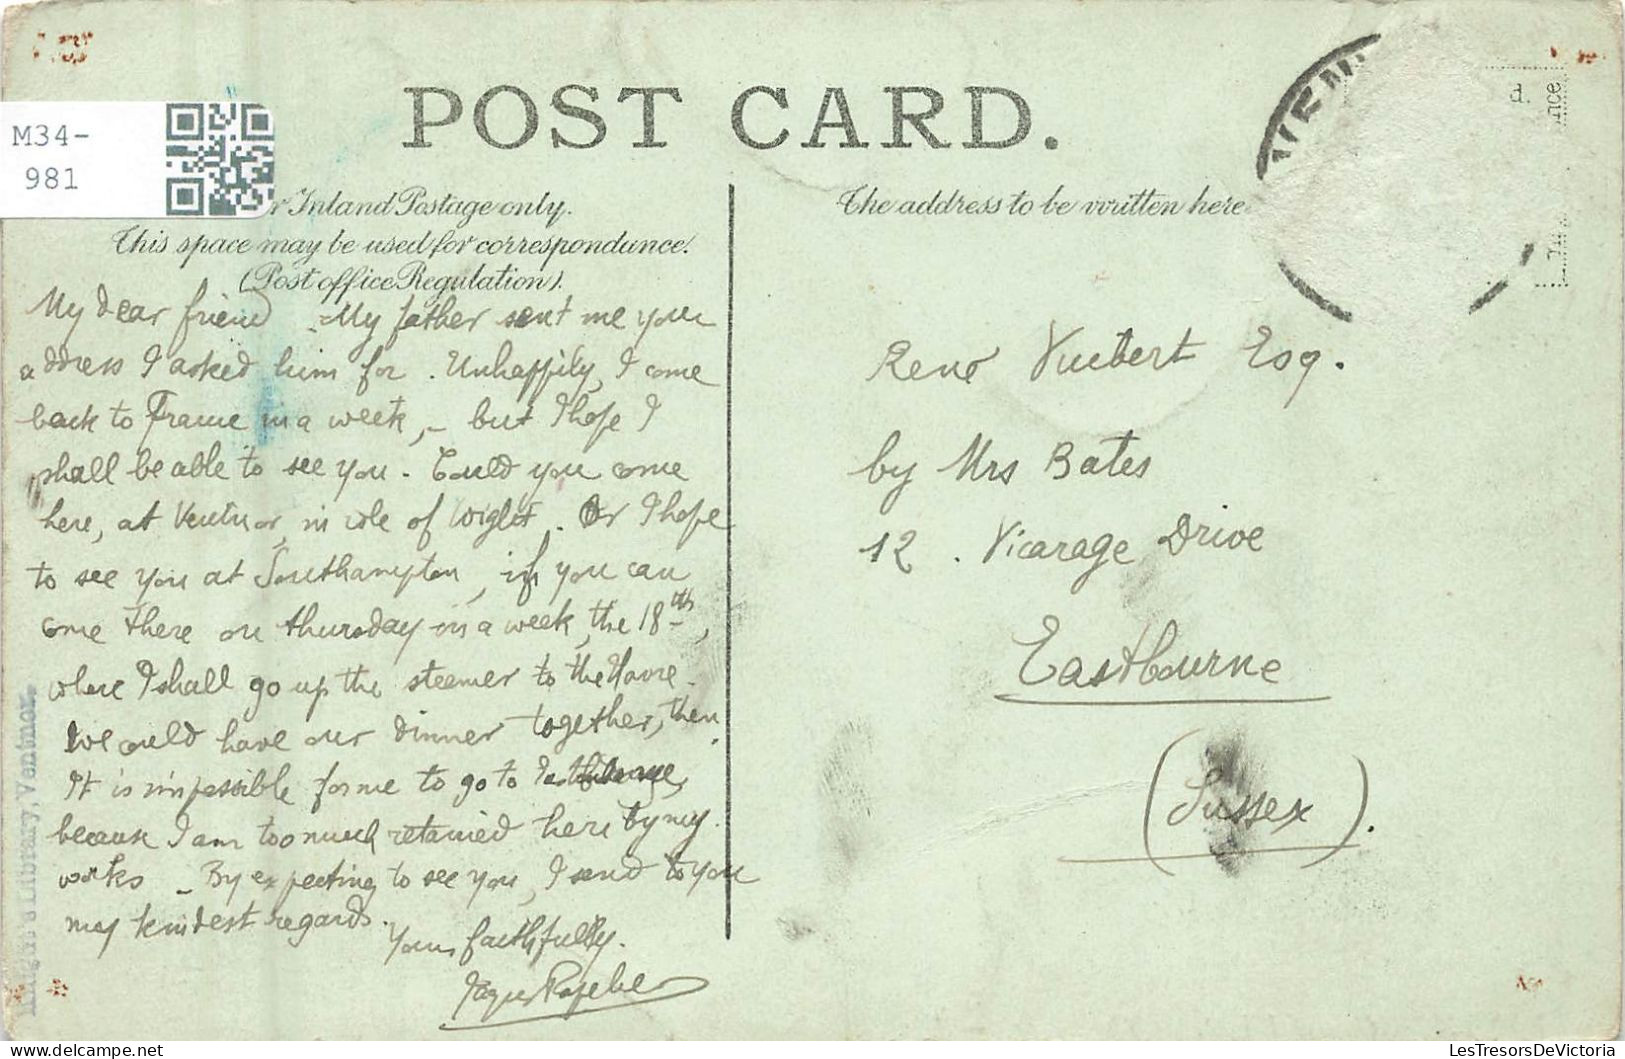 M34-
981
POST CARD.
r Inland Postage only.
This space may be used for correspondance.
(Post office Regulation).
The address to be written here
VENT
d.
nce
My dear friend - My father sent me your
address I asked him for. Unhappily, I come
back to France in a week, - but I hope I
shall be able to see you. Could you come
here, at Ventnor, in isle of Wight. Or I hope
to see you at Southampton, if you can
come there on thursday in a week, the 18th,
where I shall go up the steamer to the Havre.
We could have our dinner together, then.
It is impossible for me to go to Eastbourne,
because I am too much retained here by my
works - By expecting to see you, I send to you
my kindest regards.
Yours faithfully.
René Vuibert Esq.
by Mrs Bates
12. Vicarage Drive
Eastbourne
(Sussex).
Knight's Library, Ventnor.
LesTresorsDeVictoria